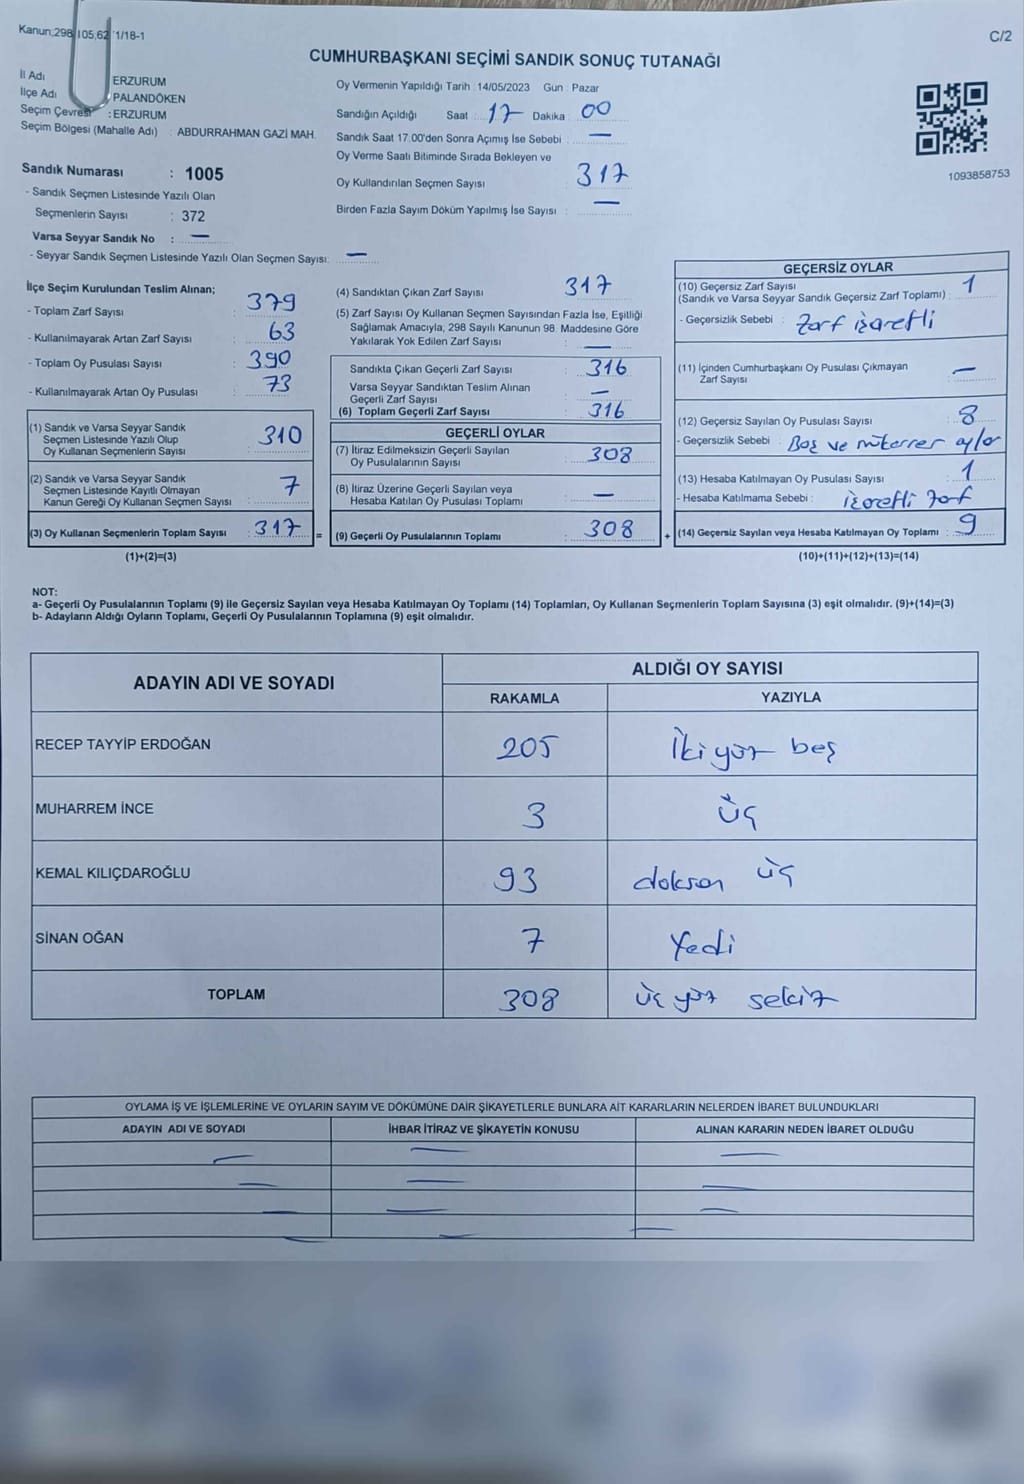 Kanun,298 105,62 1/18-1
C/2
CUMHURBAŞKANI SEÇİMİ SANDIK SONUÇ TUTANAĞI
İl Adı ERZURUM
İlçe Adı PALANDÖKEN
Seçim Çevresi : ERZURUM
Seçim Bölgesi (Mahalle Adı) : ABDURRAHMAN GAZİ MAH.
Sandık Numarası : 1005
- Sandık Seçmen Listesinde Yazılı Olan
Seçmenlerin Sayısı : 372
Varsa Seyyar Sandık No : —
- Seyyar Sandık Seçmen Listesinde Yazılı Olan Seçmen Sayısı: —
Oy Vermenin Yapıldığı Tarih : 14/05/2023 Gün : Pazar
Sandığın Açıldığı Saat : 17 Dakika : 00
Sandık Saat 17.00'den Sonra Açımış İse Sebebi : —
Oy Verme Saati Bitiminde Sırada Bekleyen ve
Oy Kullandırılan Seçmen Sayısı : 317
Birden Fazla Sayım Döküm Yapılmış İse Sayısı : —
1093858753
İlçe Seçim Kurulundan Teslim Alınan;
- Toplam Zarf Sayısı : 379
- Kullanılmayarak Artan Zarf Sayısı : 63
- Toplam Oy Pusulası Sayısı : 390
- Kullanılmayarak Artan Oy Pusulası : 73
(1) Sandık ve Varsa Seyyar Sandık
Seçmen Listesinde Yazılı Olup
Oy Kullanan Seçmenlerin Sayısı : 310
(2) Sandık ve Varsa Seyyar Sandık
Seçmen Listesinde Kayıtlı Olmayan
Kanun Gereği Oy Kullanan Seçmen Sayısı : 7
(3) Oy Kullanan Seçmenlerin Toplam Sayısı : 317 =
(1)+(2)=(3)
(4) Sandıktan Çıkan Zarf Sayısı : 317
(5) Zarf Sayısı Oy Kullanan Seçmen Sayısından Fazla İse, Eşitliği
Sağlamak Amacıyla; 298 Sayılı Kanunun 98. Maddesine Göre
Yakılarak Yok Edilen Zarf Sayısı : —
Sandıkla Çıkan Geçerli Zarf Sayısı : 316
Varsa Seyyar Sandıktan Teslim Alınan
Geçerli Zarf Sayısı : —
(6) Toplam Geçerli Zarf Sayısı : 316
GEÇERLİ OYLAR
(7) İtiraz Edilmeksizin Geçerli Sayılan
Oy Pusulalarının Sayısı : 308
(8) İtiraz Üzerine Geçerli Sayılan veya
Hesaba Katılan Oy Pusulası Toplamı : —
(9) Geçerli Oy Pusulalarının Toplamı : 308 +
GEÇERSİZ OYLAR
(10) Geçersiz Zarf Sayısı
(Sandık ve Varsa Seyyar Sandık Geçersiz Zarf Toplamı) : 1
- Geçersizlik Sebebi : Zarf işaretli
(11) İçinden Cumhurbaşkanı Oy Pusulası Çıkmayan
Zarf Sayısı : —
(12) Geçersiz Sayılan Oy Pusulası Sayısı : 8
- Geçersizlik Sebebi : Boş ve mükerrer oylar
(13) Hesaba Katılmayan Oy Pusulası Sayısı : 1
- Hesaba Katılmama Sebebi : işaretli zarf
(14) Geçersiz Sayılan veya Hesaba Katılmayan Oy Toplamı : 9
(10)+(11)+(12)+(13)=(14)
NOT:
a- Geçerli Oy Pusulalarının Toplamı (9) ile Geçersiz Sayılan veya Hesaba Katılmayan Oy Toplamı (14) Toplamları, Oy Kullanan Seçmenlerin Toplam Sayısına (3) eşit olmalıdır. (9)+(14)=(3)
b- Adayların Aldığı Oyların Toplamı, Geçerli Oy Pusulalarının Toplamına (9) eşit olmalıdır.
ADAYIN ADI VE SOYADI ALDIĞI OY SAYISI
RAKAMLA YAZIYLA
RECEP TAYYİP ERDOĞAN 205 İki yüz beş
MUHARREM İNCE 3 üç
KEMAL KILIÇDAROĞLU 93 doksan üç
SİNAN OĞAN 7 Yedi
TOPLAM 308 üç yüz sekiz
OYLAMA İŞ VE İŞLEMLERİNE VE OYLARIN SAYIM VE DÖKÜMÜNE DAİR ŞİKAYETLERLE BUNLARA AİT KARARLARIN NELERDEN İBARET BULUNDUKLARI
ADAYIN ADI VE SOYADI İHBAR İTİRAZ VE ŞİKAYETİN KONUSU ALINAN KARARIN NEDEN İBARET OLDUĞU